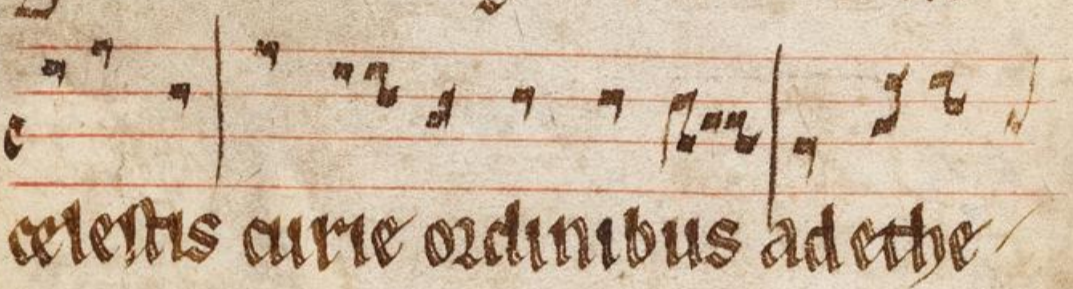 celestis curie ordinibus ad ethe